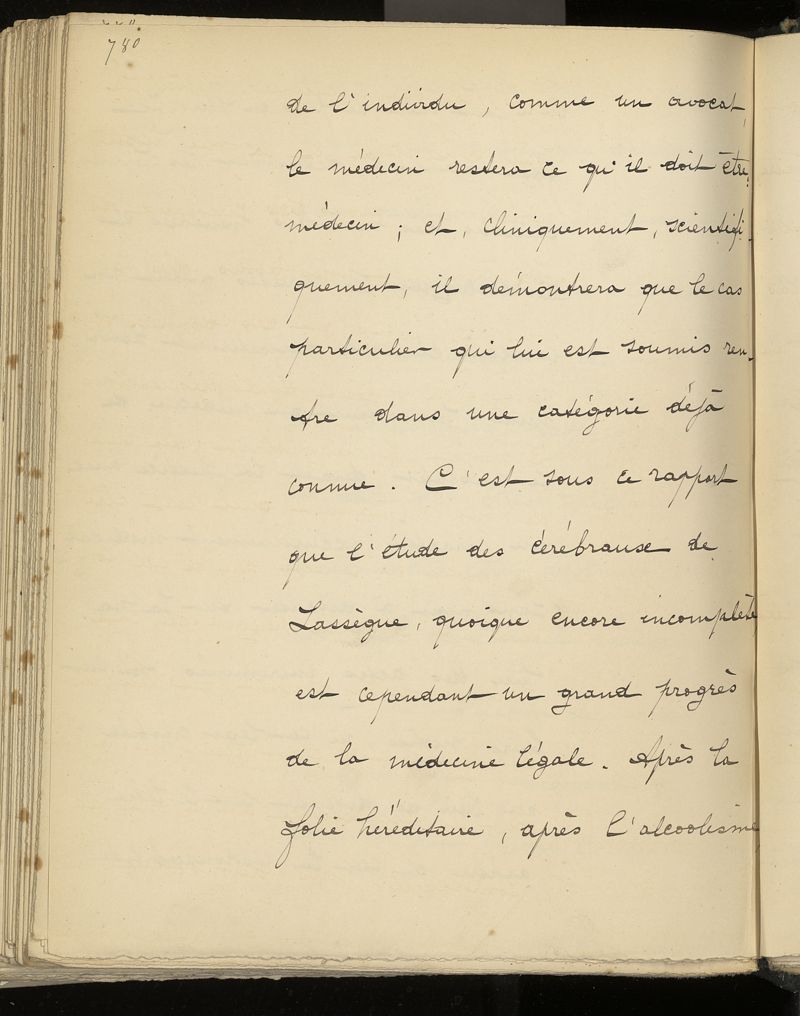 780
de l'individu, comme un avocat,
le médecin restera ce qu'il doit être:
médecin; et, cliniquement, scientifi-
quement, il démontrera que le cas
particulier qui lui est soumis ren-
tre dans une catégorie déjà
connue. C'est sous ce rapport
que l'étude des cérébraux de
Lassègue, quoique encore incomplète
est cependant un grand progrès
de la médecine légale. Après la
folie héréditaire, après l'alcoolisme